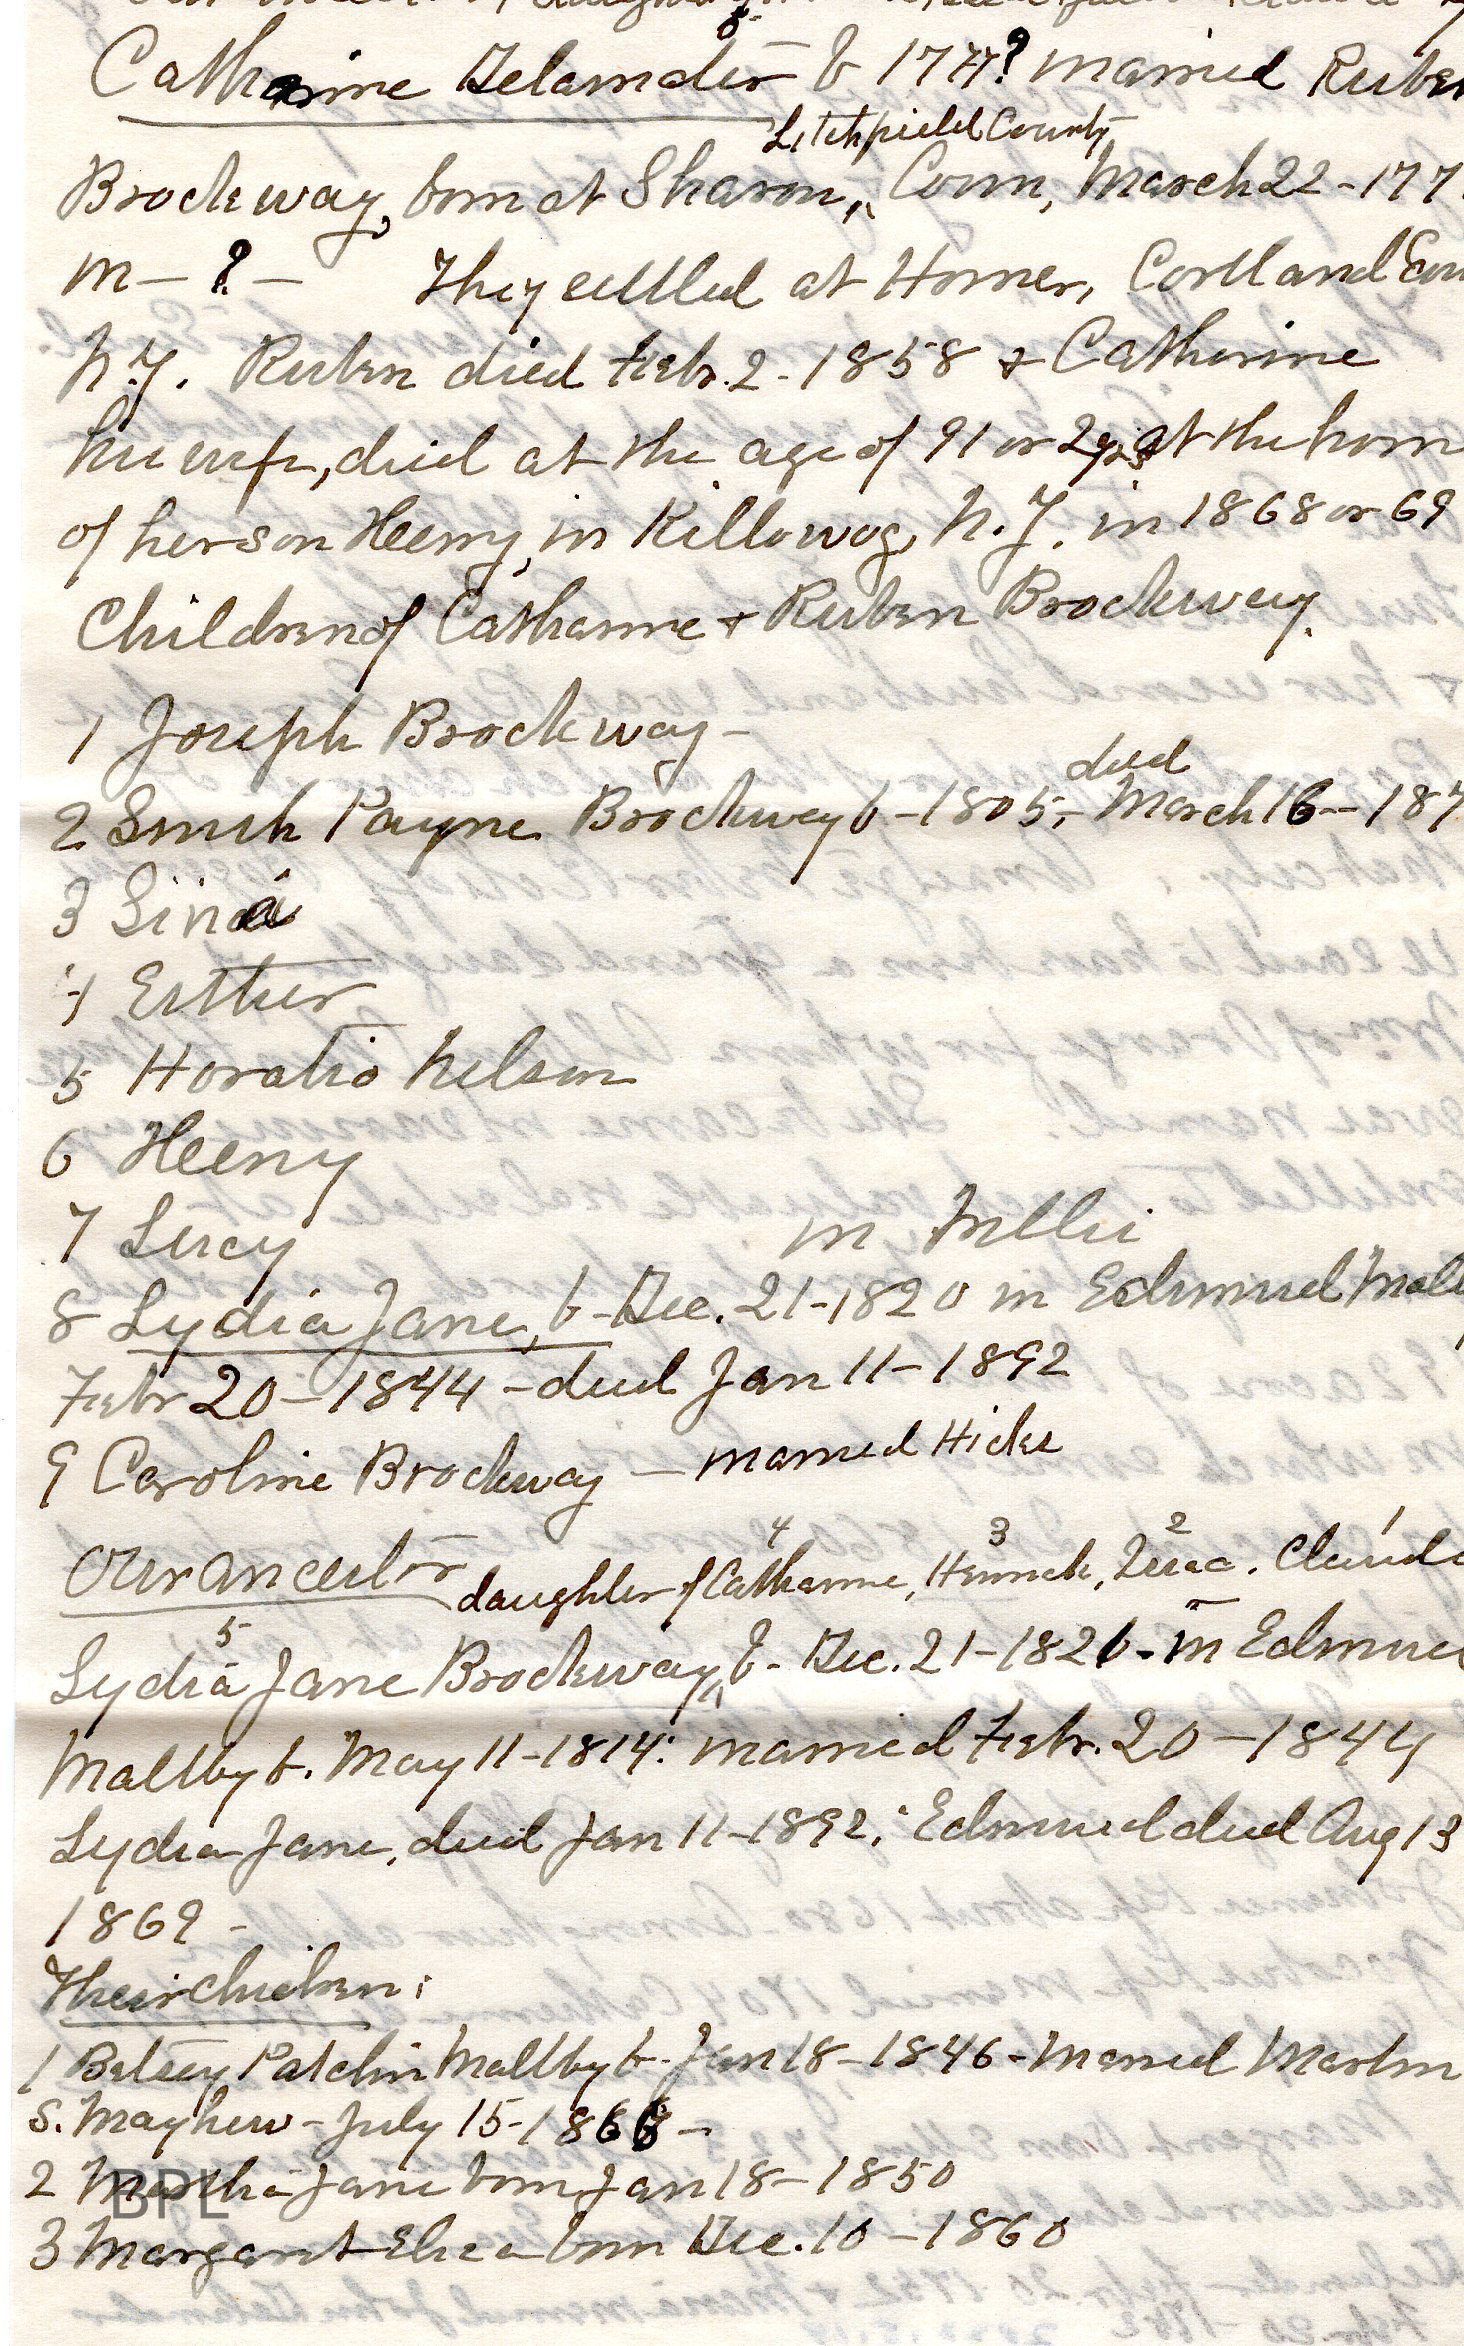 Catharine Delamater b 1777? married Ruben
Litchfield County
Brockway, born at Sharon, Conn, March 22 - 177
m - ? - They settled at Homer, Cortland Coun
N.Y. Ruben died Febr. 2 - 1858 & Catherine
his wife, died at the age of 91 or 2 yrs at the hom
of her son Heeny, in Killawog, N.Y. in 1868 or 69
Children of Catharine & Ruben Brockway.
1 Joseph Brockway -
died
2 Smith Payne Brockway b - 1805, - March 16 - 187
3 Sina
4 Esther
5 Horatio Nelson
6 Heeny
7 Lucy
m
8 Lydia Jane, b - Dec. 21 - 1820 m Edmund Malt
Febr 20 - 1844 - died Jan 11 - 1892
9 Caroline Brockway - married Hicks
4 3 2 1
Our ancestor daughter of Catharine, Isaac, Claude
5
Lydia Jane Brockway, b - Dec. 21 - 1820 - m Edmu
Maltby b. May 11 - 1814: married Febr. 20 - 1844
Lydia Jane, died Jan 11 - 1892; Edmund died Aug 13
1869 -
Their children:
1 Betsey Patchin Maltby b - Jan 18 - 1846 - Married Martin
S. Mayhew - July 15 - 1868 -
2 Martha Jane born Jan 18 - 1850
BPL
3 Margaret Eliza born Dec. 10 - 1860